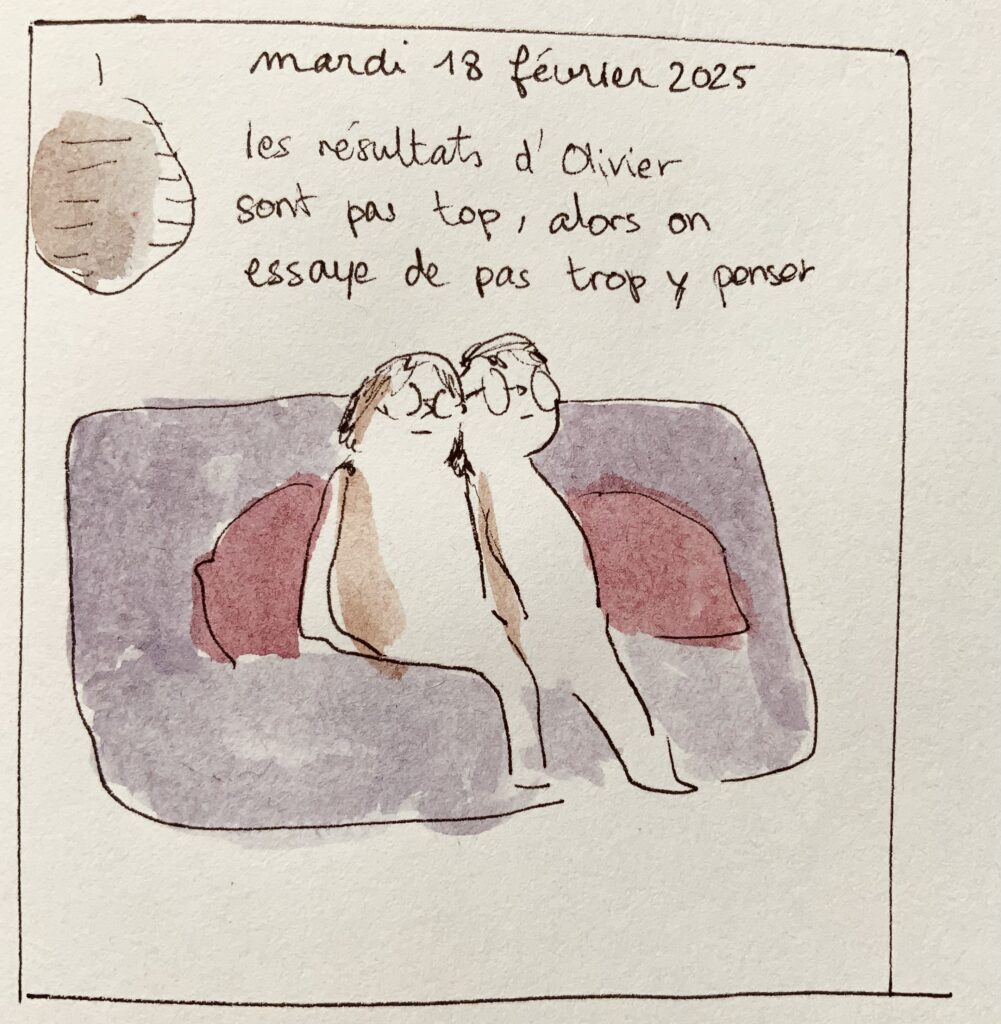 mardi 18 février 2025
les résultats d'Olivier
sont pas top, alors on
essaye de pas trop y penser